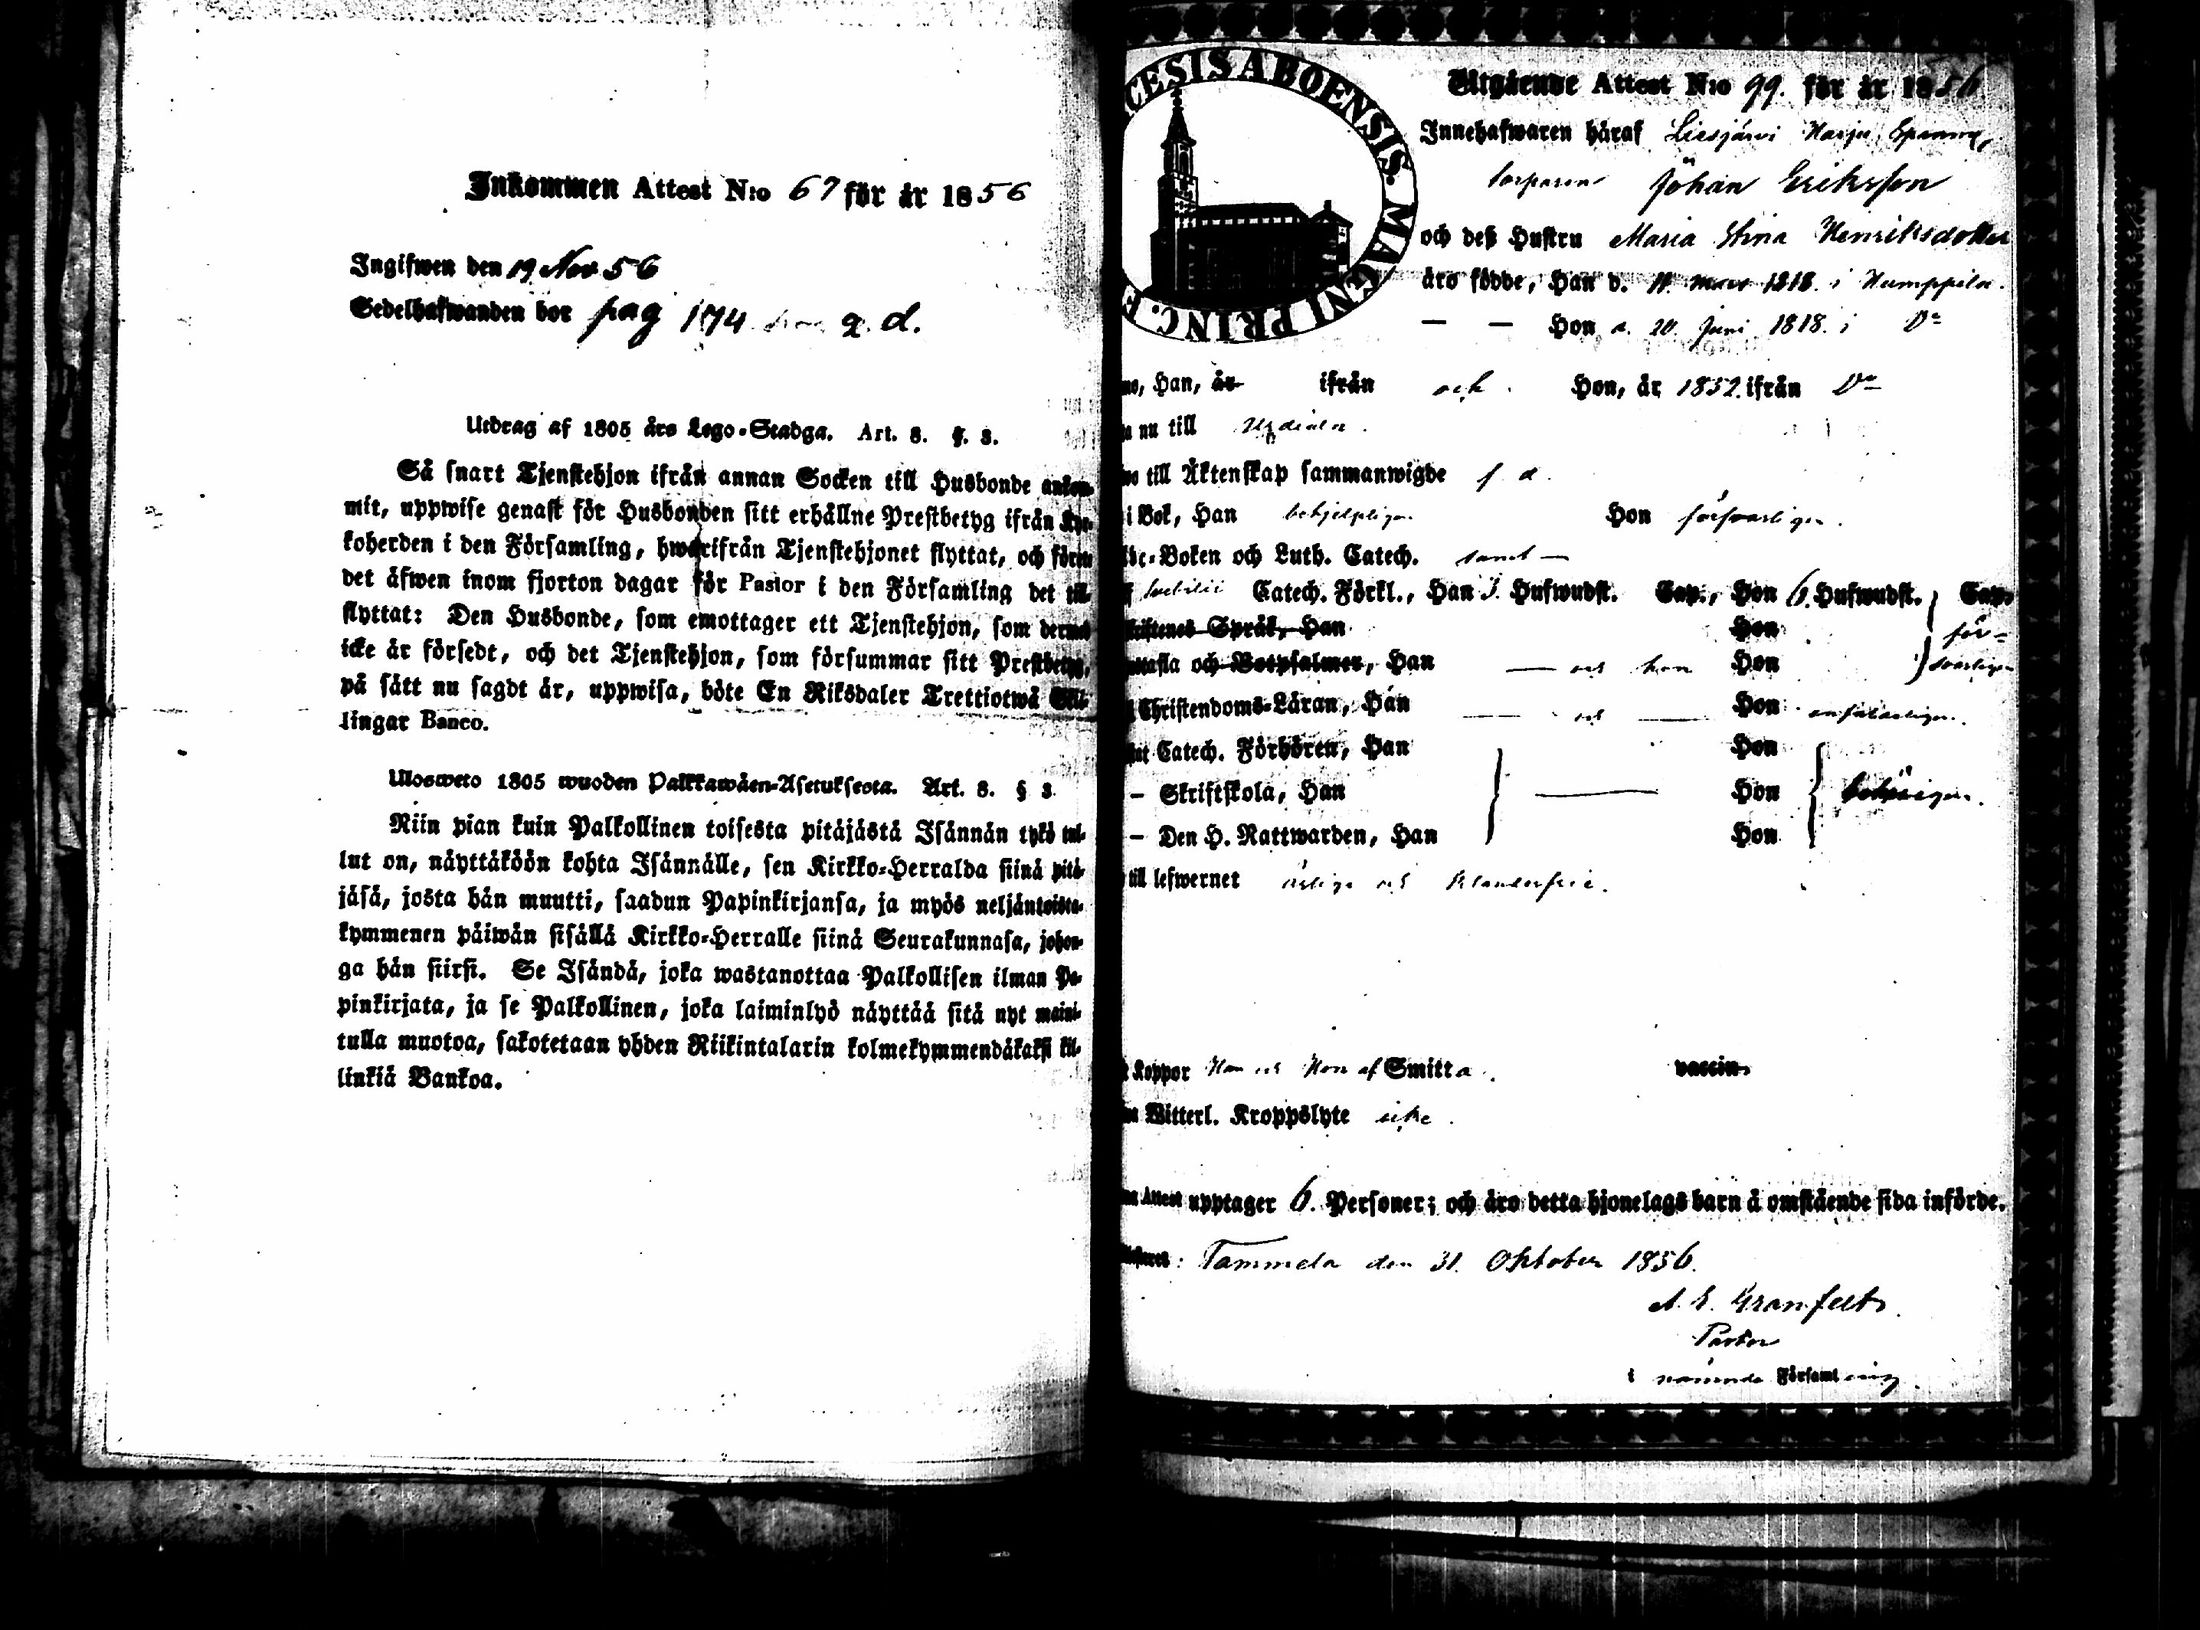 Inkommen Attest N:o 67 för år 1856
Ingifwen den 19 Nov 56
Sedelhafwanden bor pag 174 g. d.
Utdrag af 1805 års Lego-Stadga. Art. 8. §. 3.
Så snart Tjenstehjon ifrån annan Socken till Husbonde ankom-
mit, uppwise genast för Husbonden sitt erhållne Prestbetyg ifrån Kyr-
koherden i den Församling, hwarifrån Tjenstehjonet flyttat, och förete
det äfwen inom fjorton dagar för Pastor i den Församling det till-
flyttat: Den Husbonde, som emottager ett Tjenstehjon, som dermed
icke är försedt, och det Tjenstehjon, som försummar sitt Prestbetyg,
på sätt nu sagdt är, uppwisa, böte En Riksdaler Trettiotwå Skil-
lingar Banco.
Ulosweto 1805 wuoden Palkkawäen-Asetuksesta. Art. 8. § 3
Niin pian kuin Palkollinen toisesta pitäjästä Isännän tykö tul-
lut on, näyttäköön kohta Isännälle, sen Kirkko-Herralda siinä pitä-
jäsä, josta hän muutti, saadun Papinkirjansa, ja myös neljäntoista-
kymmenen päiwän sisällä Kirkko-Herralle siinä Seurakunnasa, johon-
ga hän siirsi. Se Isändä, joka wastanottaa Palkollisen ilman Pa-
pinkirjata, ja se Palkollinen, joka laiminlyö näyttää sitä nyt maini-
tulla muotoa, sakotetaan yhden Riikintalarin kolmekymmendäkaksi kil-
linkiä Bankoa.
CESIS ABOENSIS. MAGNI PRINC. F
Utgående Attest N:o 99. för år 1856
Innehafwaren häraf Liesjärvi Harju
Johan Eriksson
och deß Hustru Maria Stina Henriksdotter
äro födde, Han d. 11 mars 1818. i Humppila.
— — Hon d. 20 Juni 1818. i Do
Han, är ifrån och Hon, år 1852. ifrån Do
nu till
till Äktenskap sammanwigde
i Bok, Han behjelpligen Hon försvarligen.
Boken och Luth. Catech. samt —
Catech. Förkl., Han 3. Hufwudst. Cap., Hon 6. Hufwudst. Cap.
Språk, Han Hon för-
tafla och Botpsalmer, Han — och hon Hon svarligen
Christendoms-Läran, Han — och — Hon
Catech. Förhören, Han Hon
— Skriftskola, Han — Hon
— Den H. Nattwarden, Han Hon
till lefwernet ärliga och klanderfria.
Koppor Han och Hon af Smitta. vaccin
Witterl. Kroppslyte icke.
Attest upptager 6. Personer; och äro detta hjonelags barn å omstående sida införde.
Tammela den 31. Oktober 1856.
A. E. Granfelt.
Pastor
i nämnde Församling